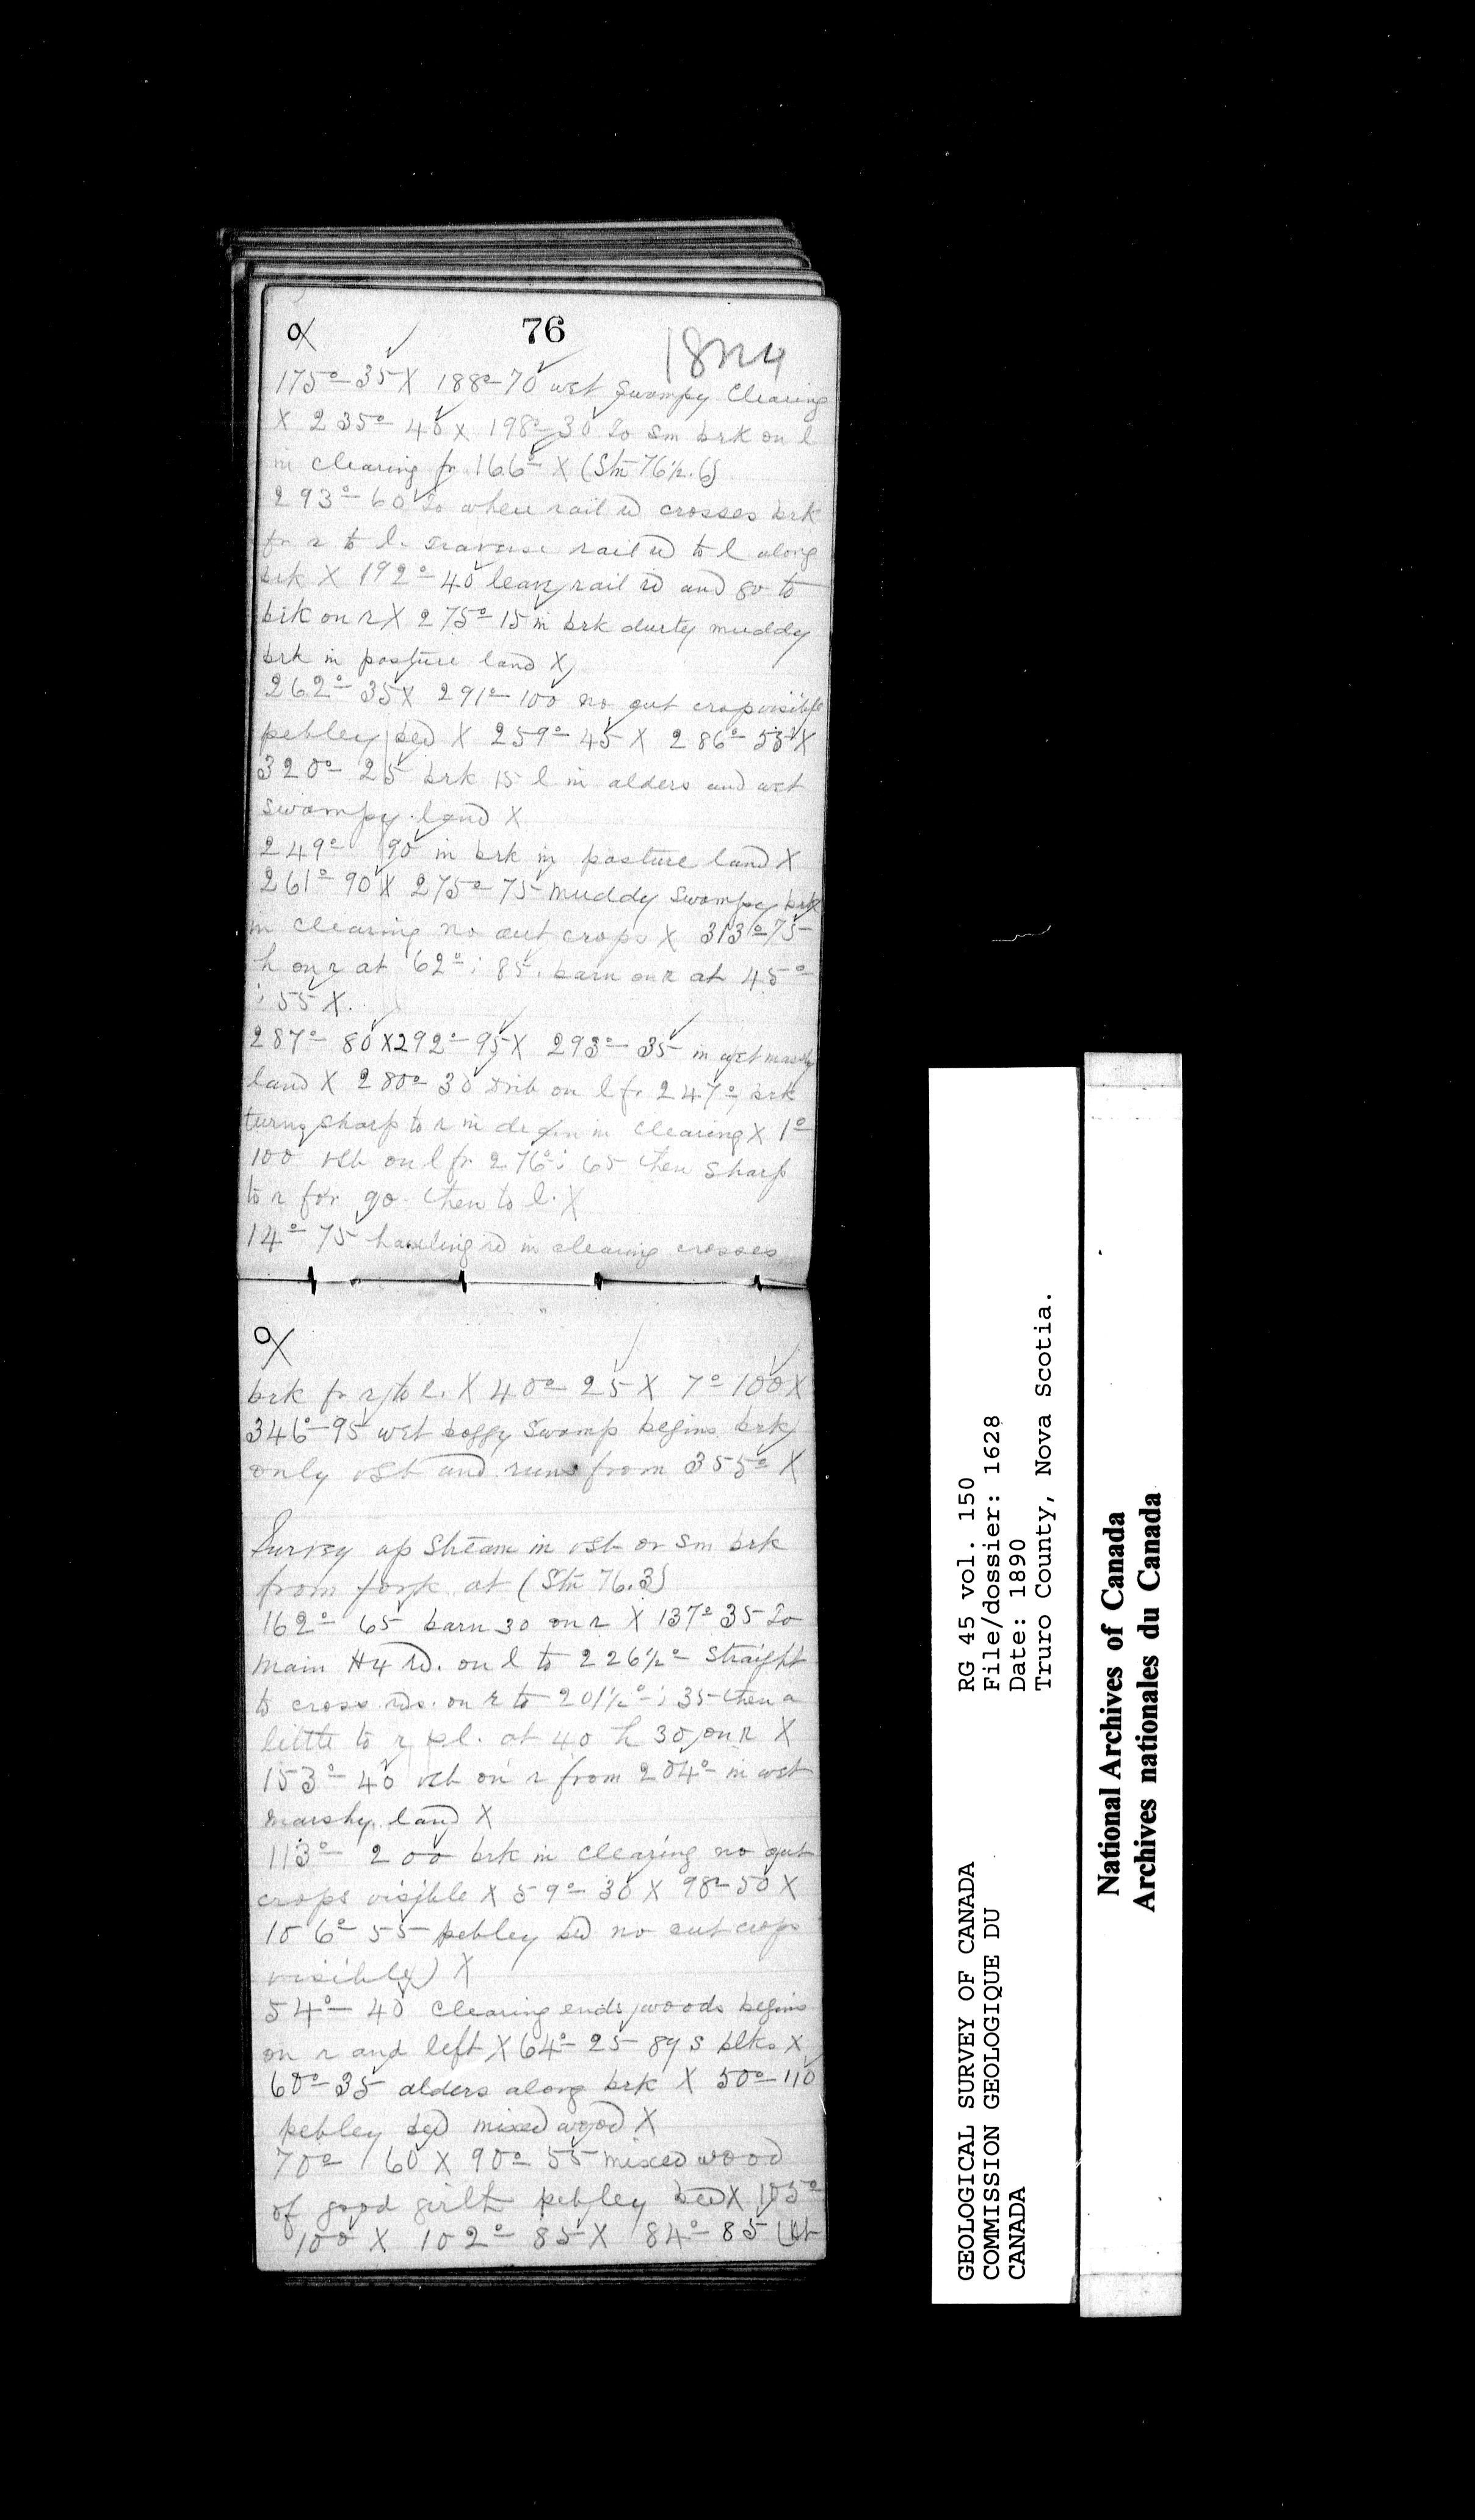 76
175°- 35 X 188°- 70 wet swampy Clearing
X 235°- 40 X 198°- 30 To sm brk on l
in clearing fr 166°- X (Stn 76½.6)
293°- 60 To where rail rd crosses brk
fr r to l. Traverse rail rd to l along
brk X 192°- 40 leave rail rd and go to
brk on r X 275°- 15 in brk durty muddy
brk in pasture land X
262°- 35 X 291°- 100 no out crop visible
pebley bed X 259°- 45 X 286°- 55 X
320°- 25 brk 15 l in alders and wet
swampy land X
249°- 90 in brk in pasture land X
261°- 90 X 275°- 75 muddy swampy brk
in clearing no out crops X 313°- 75
h on r at 62°: 85. barn on r at 45°
: 55 X.
287°- 80 X 292°- 95 X 293°- 35 in wet marshy
land X 280°- 30 trib on l fr 247° brk
turns sharp to r in clearing X 1°
100 vsb on l fr 276°: 65 then sharp
to r for 90 then to l. X
14°- 75 hauling rd in clearing crosses
brk fr r to l. X 40°- 25 X 7°- 100 X
346°- 95 wet boggy swamp begins brk
only vsb and runs from 355° X
Survey up Stream in vsb or sm brk
from fork at (Stn 76.3)
162°- 65 barn 30 on r X 137° 35 To
main H4 rd. on l to 226½°- straight
to cross rds. on r to 201½°-: 35 then a
little to r pl. at 40 h 30 on r X
153°- 40 vsb on r from 204°- in wet
marshy land X
113°- 200 brk in clearing no out
crops visible X 59°- 30 X 98°- 50 X
106°- 55 pebley bed no out crops
visible X
54°- 40 clearing ends woods begins
on r and left X 64°- 25 89 S blks X
60°- 35 alders along brk X 50°- 110
pebley bed mixed wood X
70°- 60 X 90°- 55 mixed wood
of good girth pebley bed X 105°
100 X 102°- 85 X 84°- 85
GEOLOGICAL SURVEY OF CANADA
COMMISSION GEOLOGIQUE DU
CANADA
RG 45 vol. 150
File/dossier: 1628
Date: 1890
Truro County, Nova Scotia.
National Archives of Canada
Archives nationales du Canada